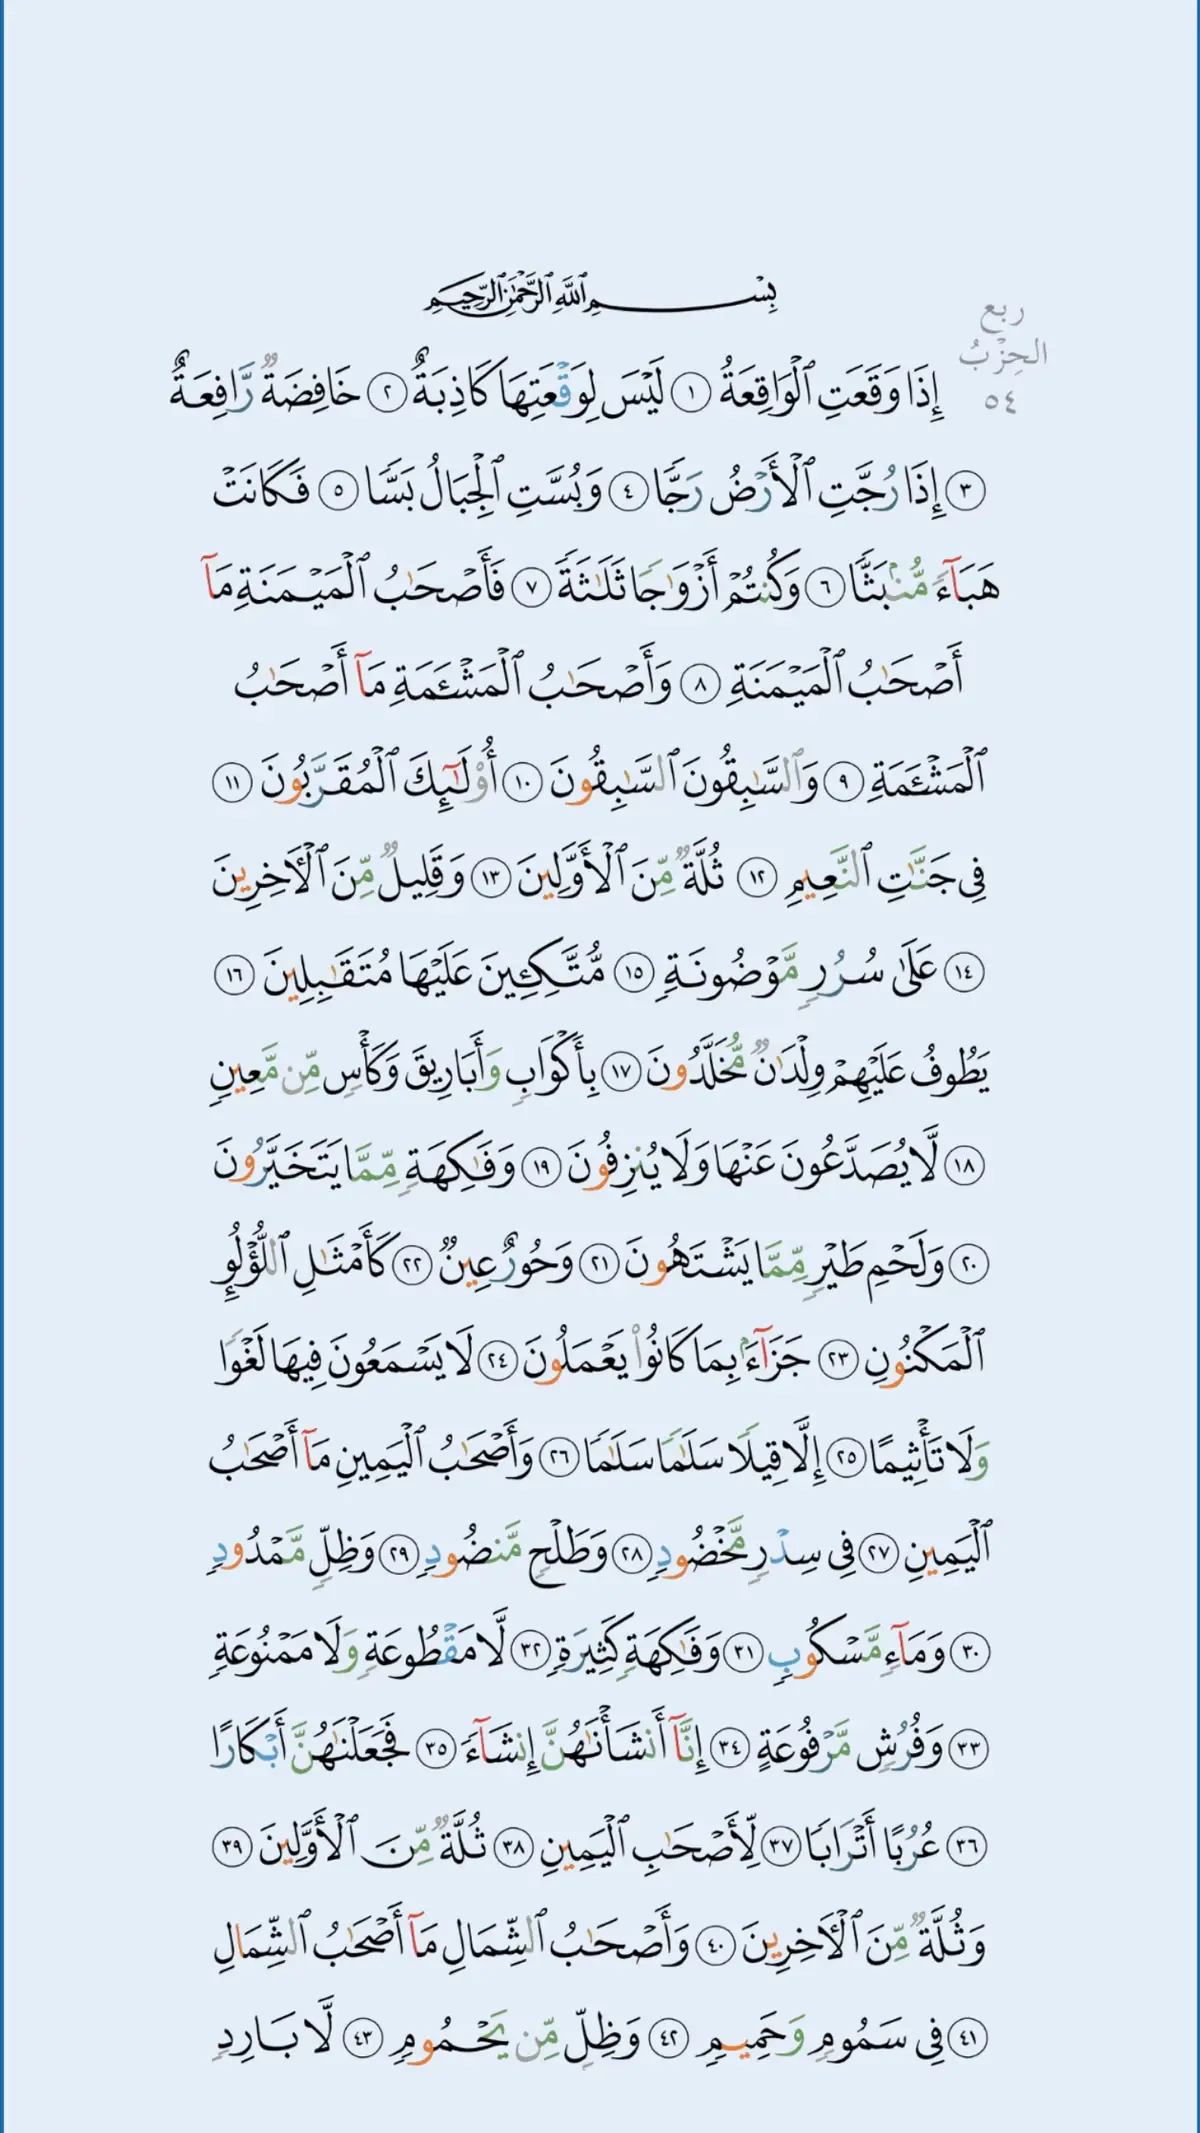 بِسْمِ ٱللَّهِ ٱلرَّحْمَٰنِ ٱلرَّحِيمِ
ربع
الحِزْبُ
٥٤
إِذَا وَقَعَتِ ٱلْوَاقِعَةُ ١ لَيْسَ لِوَقْعَتِهَا كَاذِبَةٌ ٢ خَافِضَةٌ رَّافِعَةٌ
٣ إِذَا رُجَّتِ ٱلْأَرْضُ رَجًّا ٤ وَبُسَّتِ ٱلْجِبَالُ بَسًّا ٥ فَكَانَتْ
هَبَآءً مُّنۢبَثًّا ٦ وَكُنتُمْ أَزْوَٰجًا ثَلَٰثَةً ٧ فَأَصْحَٰبُ ٱلْمَيْمَنَةِ مَآ
أَصْحَٰبُ ٱلْمَيْمَنَةِ ٨ وَأَصْحَٰبُ ٱلْمَشْـَٔمَةِ مَآ أَصْحَٰبُ
ٱلْمَشْـَٔمَةِ ٩ وَٱلسَّٰبِقُونَ ٱلسَّٰبِقُونَ ١٠ أُو۟لَٰٓئِكَ ٱلْمُقَرَّبُونَ ١١
فِى جَنَّٰتِ ٱلنَّعِيمِ ١٢ ثُلَّةٌ مِّنَ ٱلْأَوَّلِينَ ١٣ وَقَلِيلٌ مِّنَ ٱلْـَٔاخِرِينَ
١٤ عَلَىٰ سُرُرٍ مَّوْضُونَةٍ ١٥ مُّتَّكِـِٔينَ عَلَيْهَا مُتَقَٰبِلِينَ ١٦
يَطُوفُ عَلَيْهِمْ وِلْدَٰنٌ مُّخَلَّدُونَ ١٧ بِأَكْوَابٍ وَأَبَارِيقَ وَكَأْسٍ مِّن مَّعِينٍ
١٨ لَّا يُصَدَّعُونَ عَنْهَا وَلَا يُنزِفُونَ ١٩ وَفَٰكِهَةٍ مِّمَّا يَتَخَيَّرُونَ
٢٠ وَلَحْمِ طَيْرٍ مِّمَّا يَشْتَهُونَ ٢١ وَحُورٌ عِينٌ ٢٢ كَأَمْثَٰلِ ٱللُّؤْلُؤِ
ٱلْمَكْنُونِ ٢٣ جَزَآءًۢ بِمَا كَانُوا۟ يَعْمَلُونَ ٢٤ لَا يَسْمَعُونَ فِيهَا لَغْوًا
وَلَا تَأْثِيمًا ٢٥ إِلَّا قِيلًا سَلَٰمًا سَلَٰمًا ٢٦ وَأَصْحَٰبُ ٱلْيَمِينِ مَآ أَصْحَٰبُ
ٱلْيَمِينِ ٢٧ فِى سِدْرٍ مَّخْضُودٍ ٢٨ وَطَلْحٍ مَّنضُودٍ ٢٩ وَظِلٍّ مَّمْدُودٍ
٣٠ وَمَآءٍ مَّسْكُوبٍ ٣١ وَفَٰكِهَةٍ كَثِيرَةٍ ٣٢ لَّا مَقْطُوعَةٍ وَلَا مَمْنُوعَةٍ
٣٣ وَفُرُشٍ مَّرْفُوعَةٍ ٣٤ إِنَّآ أَنشَأْنَٰهُنَّ إِنشَآءً ٣٥ فَجَعَلْنَٰهُنَّ أَبْكَارًا
٣٦ عُرُبًا أَتْرَابًا ٣٧ لِّأَصْحَٰبِ ٱلْيَمِينِ ٣٨ ثُلَّةٌ مِّنَ ٱلْأَوَّلِينَ ٣٩
وَثُلَّةٌ مِّنَ ٱلْـَٔاخِرِينَ ٤٠ وَأَصْحَٰبُ ٱلشِّمَالِ مَآ أَصْحَٰبُ ٱلشِّمَالِ
٤١ فِى سَمُومٍ وَحَمِيمٍ ٤٢ وَظِلٍّ مِّن يَحْمُومٍ ٤٣ لَّا بَارِدٍ